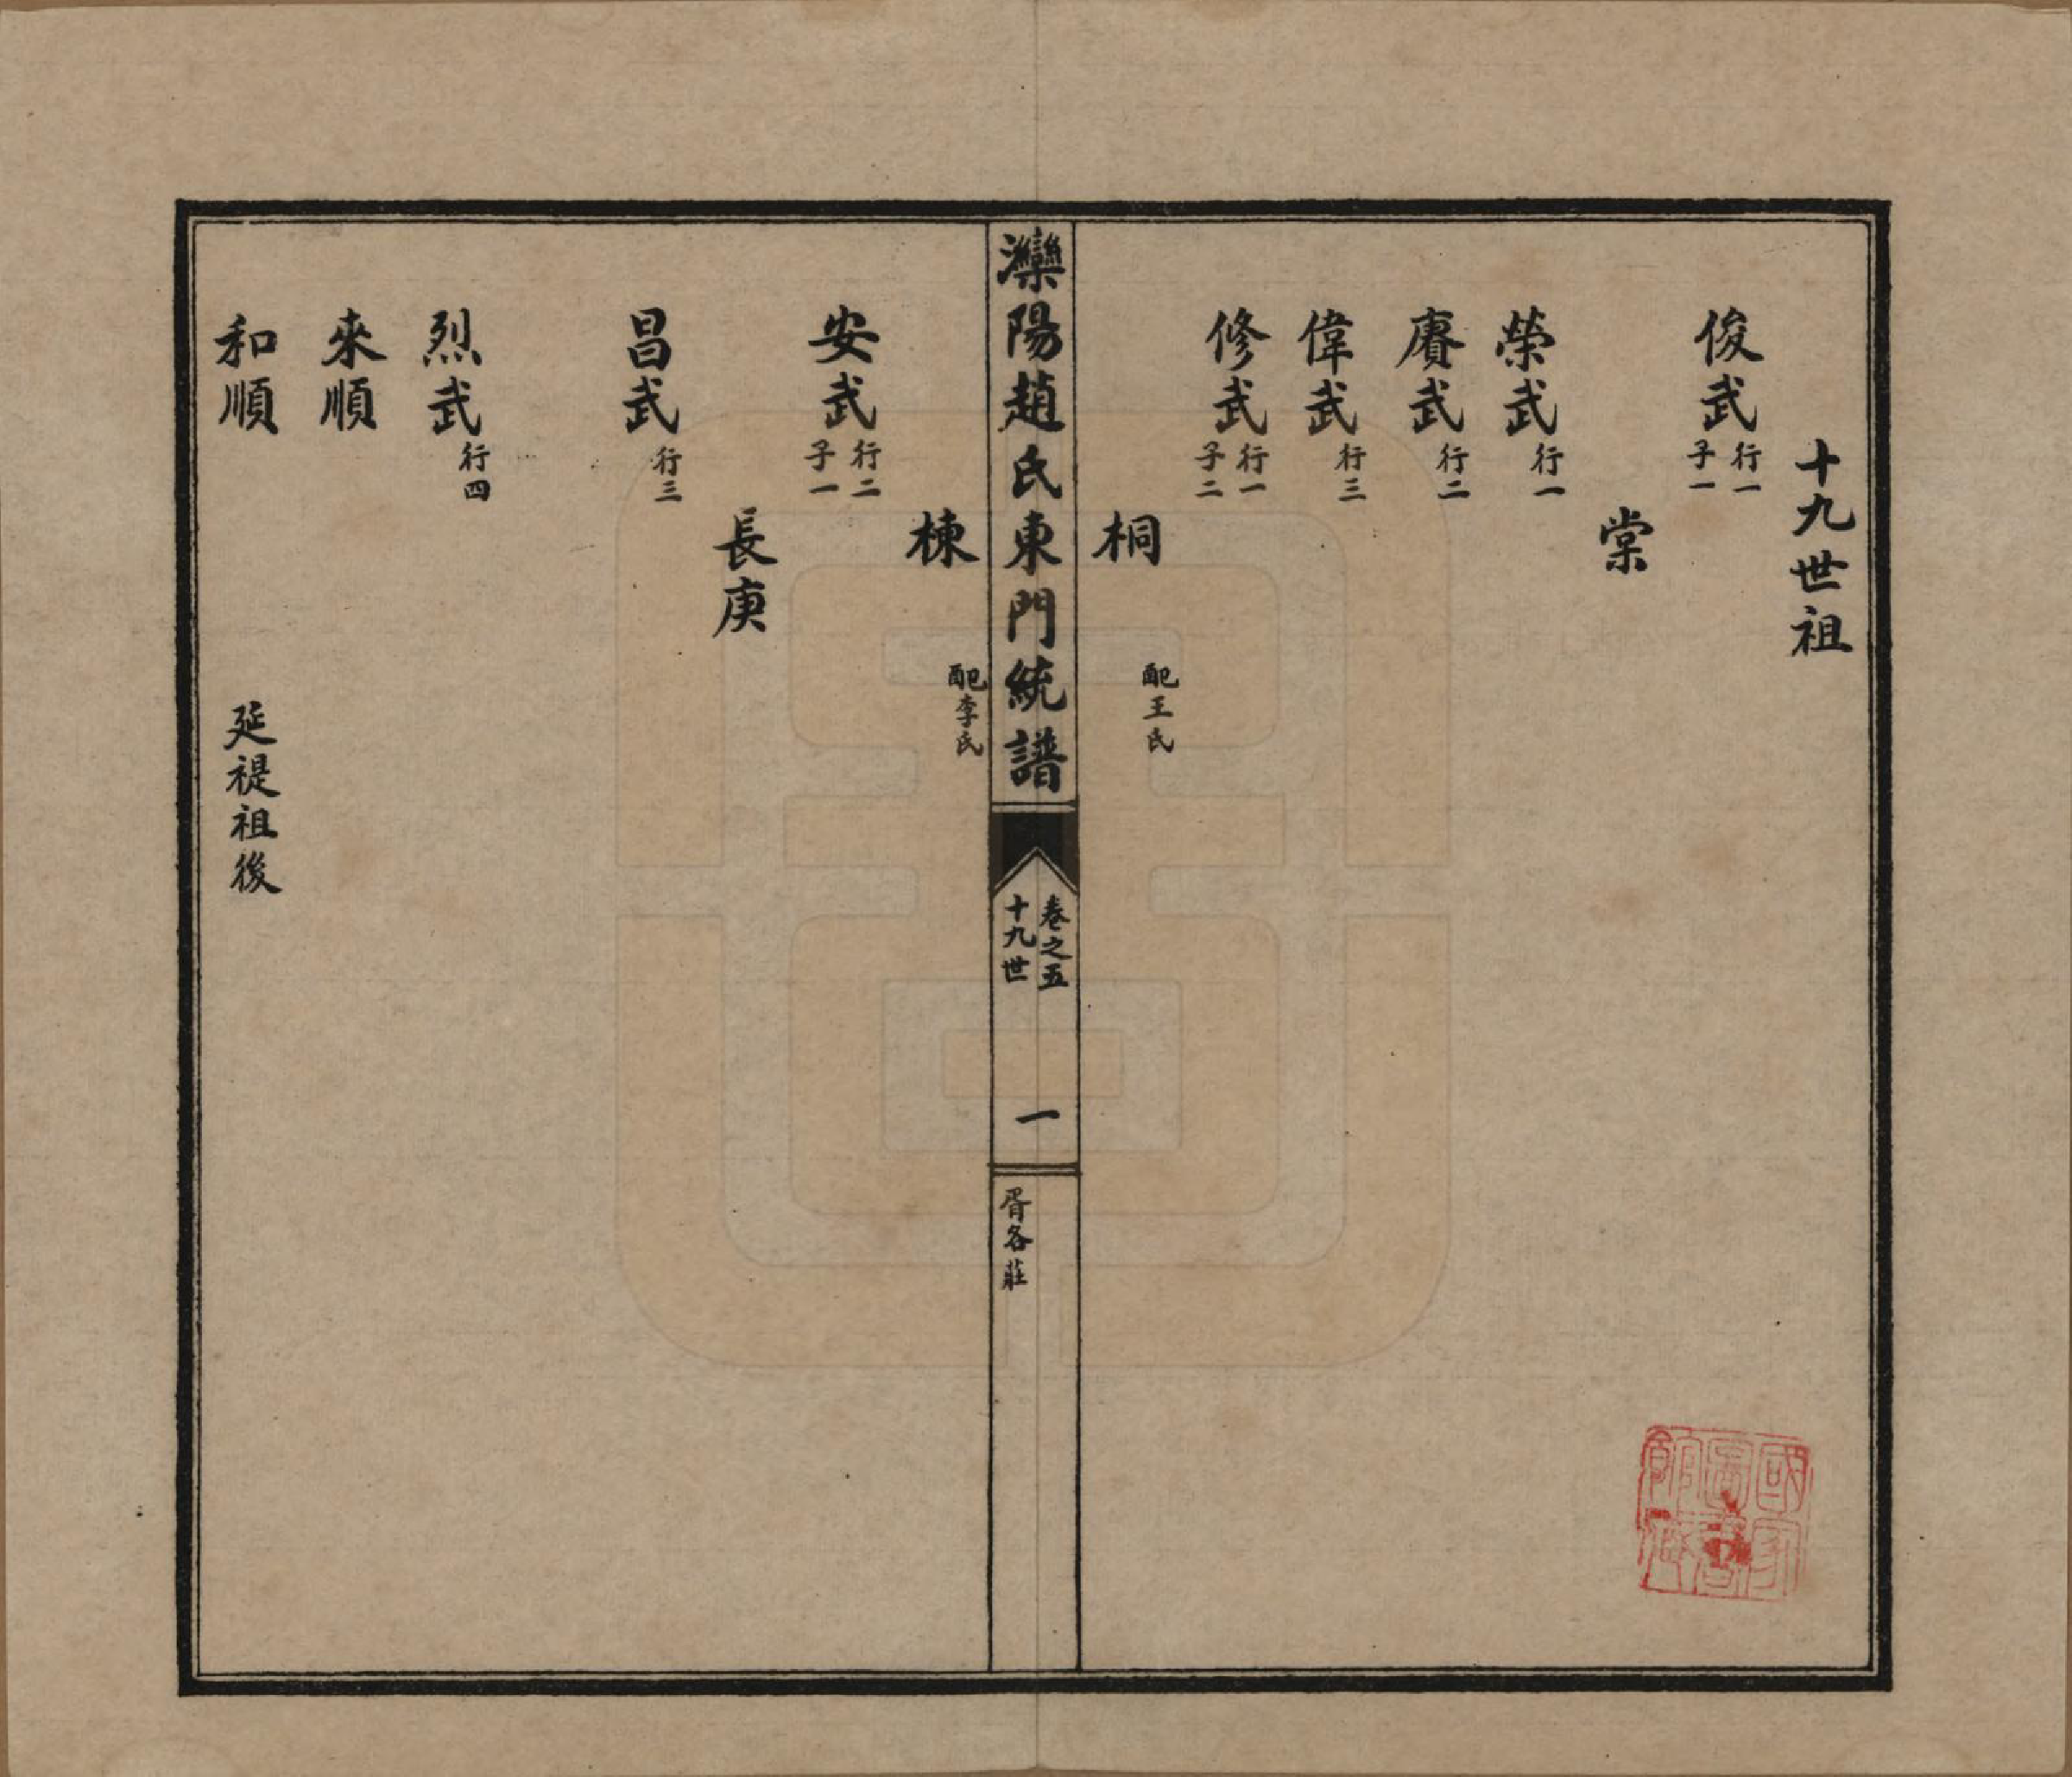 十九世祖
俊武 行一 子一
棠
榮武 行一
賡武 行二
偉武 行三
修武 行一 子二
桐 配王氏
灤陽趙氏東門統譜
卷之五
十九世
一
胥各莊
棟 配李氏
安武 行二 子一
長庚
昌武 行三
烈武 行四
來順
和順 延禔祖後
國家圖書館藏